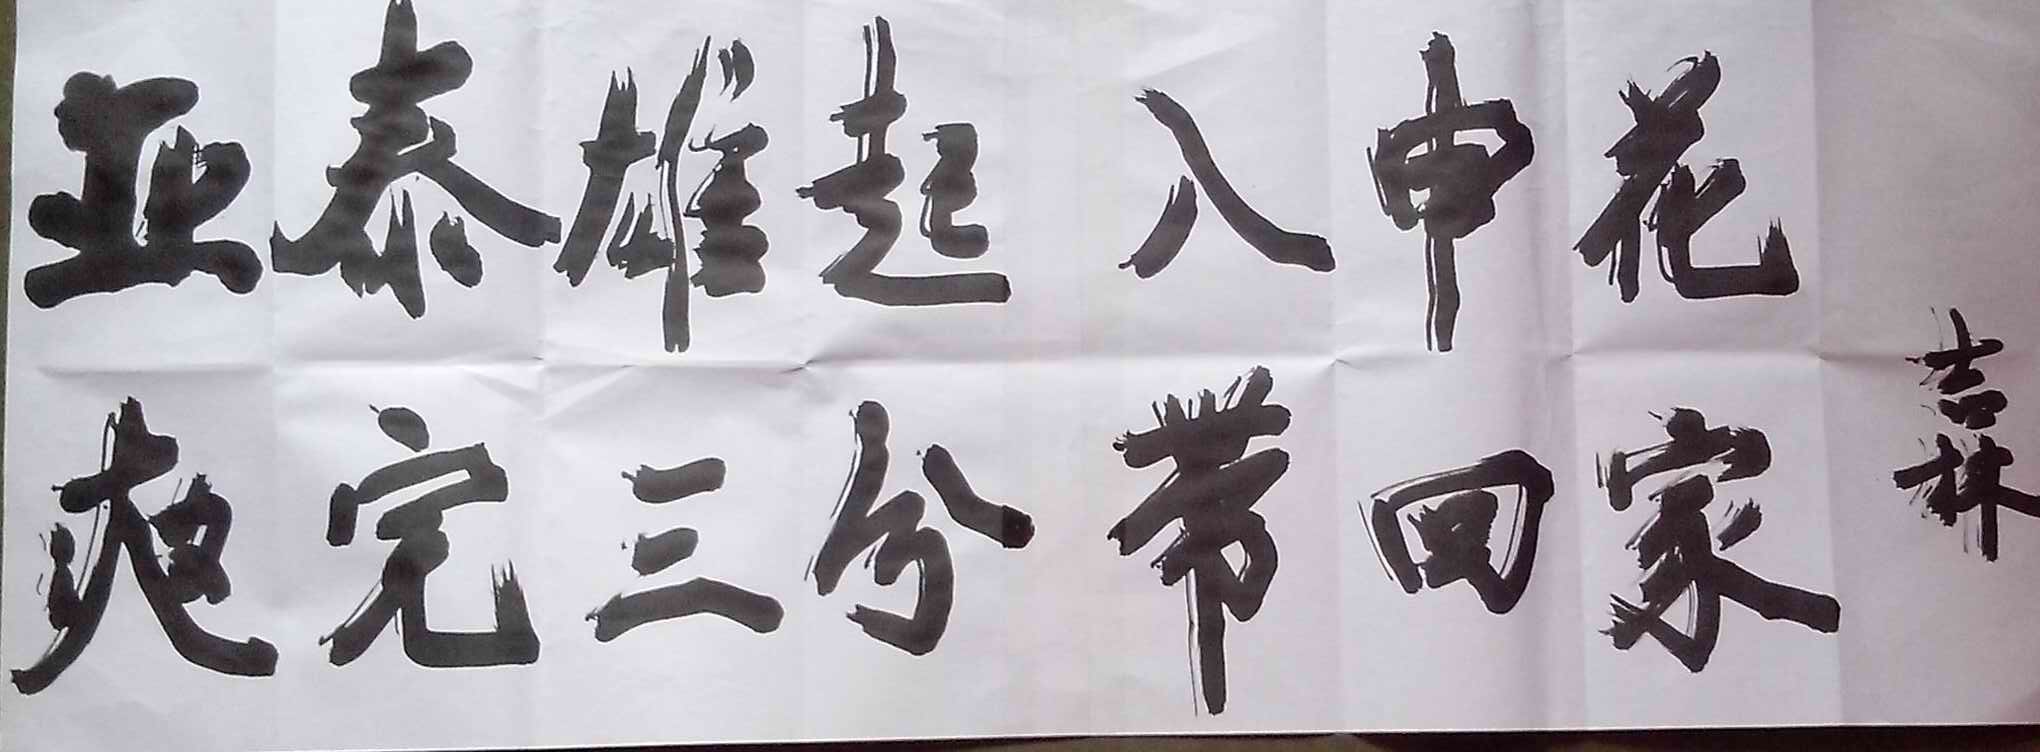 亚泰雄起 入申花
抢完三分 带回家
吉林